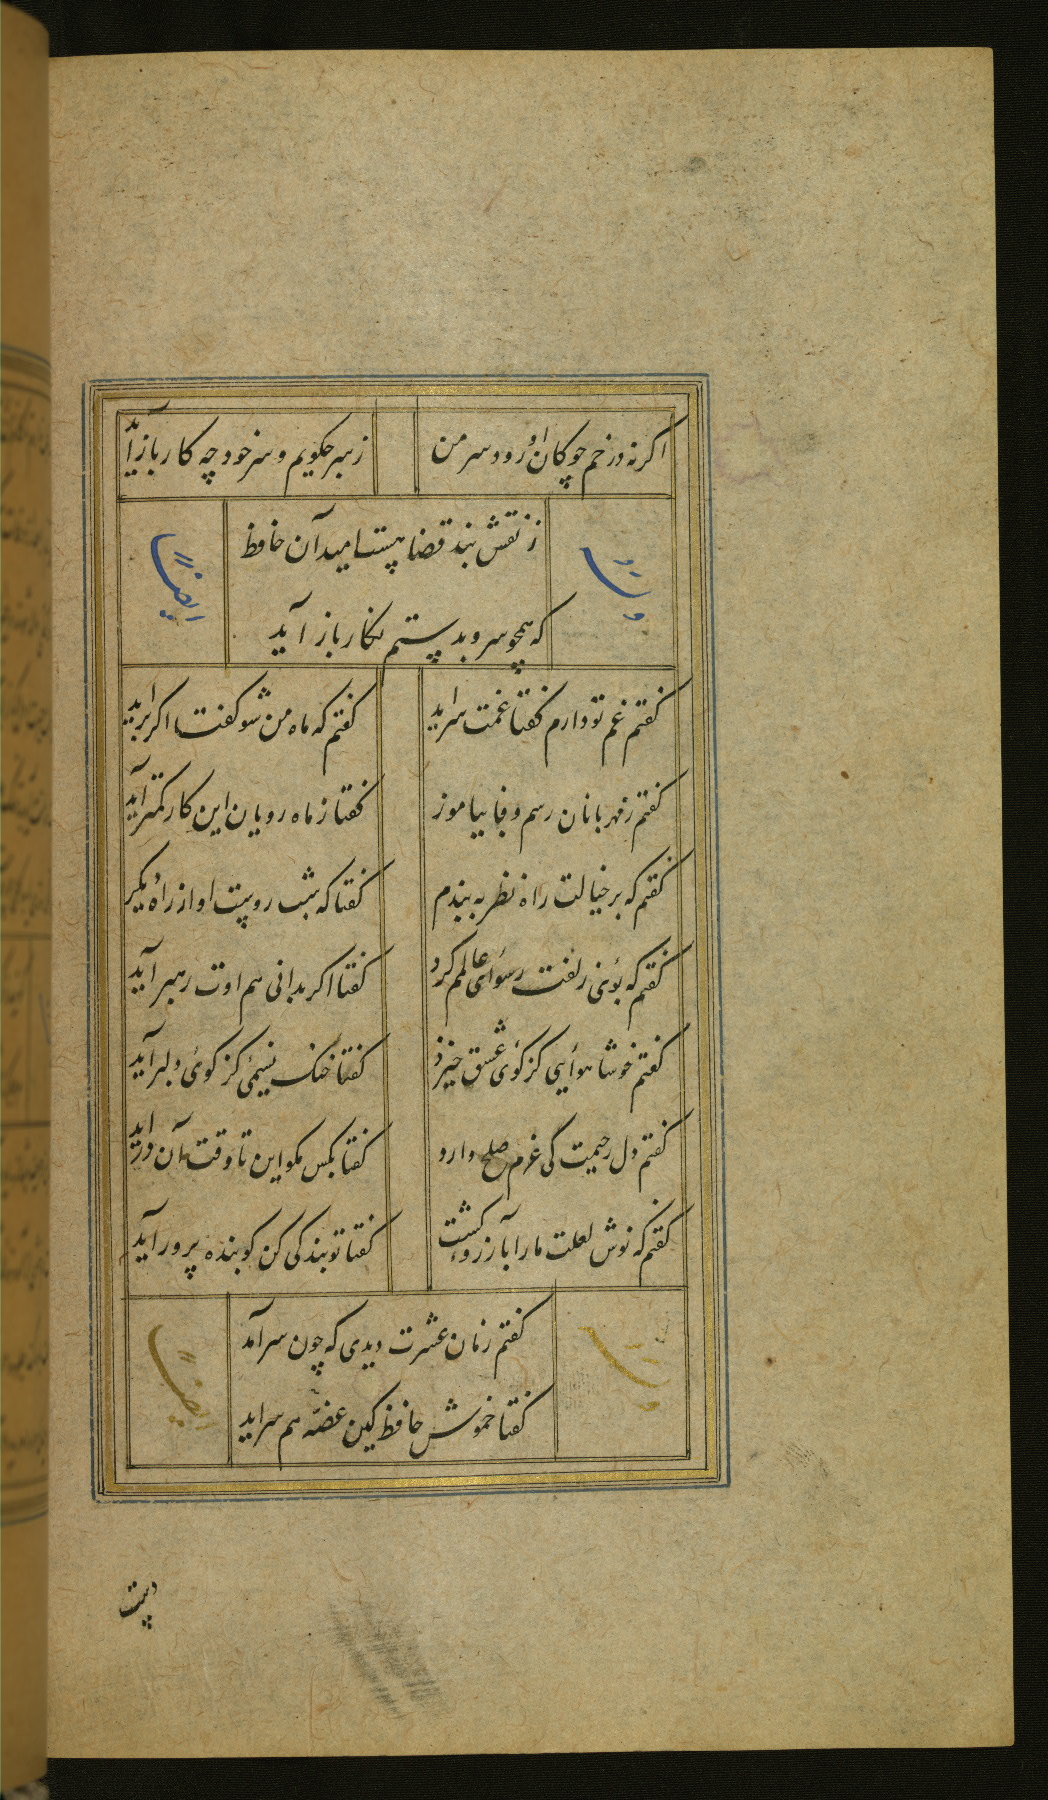 اگر نه در خم چوکان او رود سر من
ز سر چکویم و سر خود چه کار باز آید
ز نقش بند قضا هست امید آن حافظ
وله
ایضاً
که همچو سرو بدستم نکار باز آید
کفتم غم تو دارم کفتا غمت سر اید
کفتم که ماه من شو کفت اکر بر اید
کفتم ز مهربانان رسم وفا بیاموز
کفتا ز ماه رویان این کار کمتر آید
کفتم که بر خیالت راه نظر به بندم
کفتا که شب روست او از راه دیکر
کفتم که بوئی زلفت رسوای عالمم کرد
کفتا اکر بدانی هم اوت رهبر آید
کفتم خوشا هوایی کز کوئ عشق خیزد
کفتا خنک نسیمی کز کوئ دلبر آید
کفتم دل رحیمت کی عزم صلح دارد
کفتا بکس مکو این تا وقت آن در اید
کفتم که نوش لعلت ما را بآرزو کشت
کفتا تو بندکی کن کو بنده پرور آید
کفتم زمان عشرت دیدی که چون سر آمد
ایضاً
کفتا خموش حافظ کین غصه هم سر اید
دست